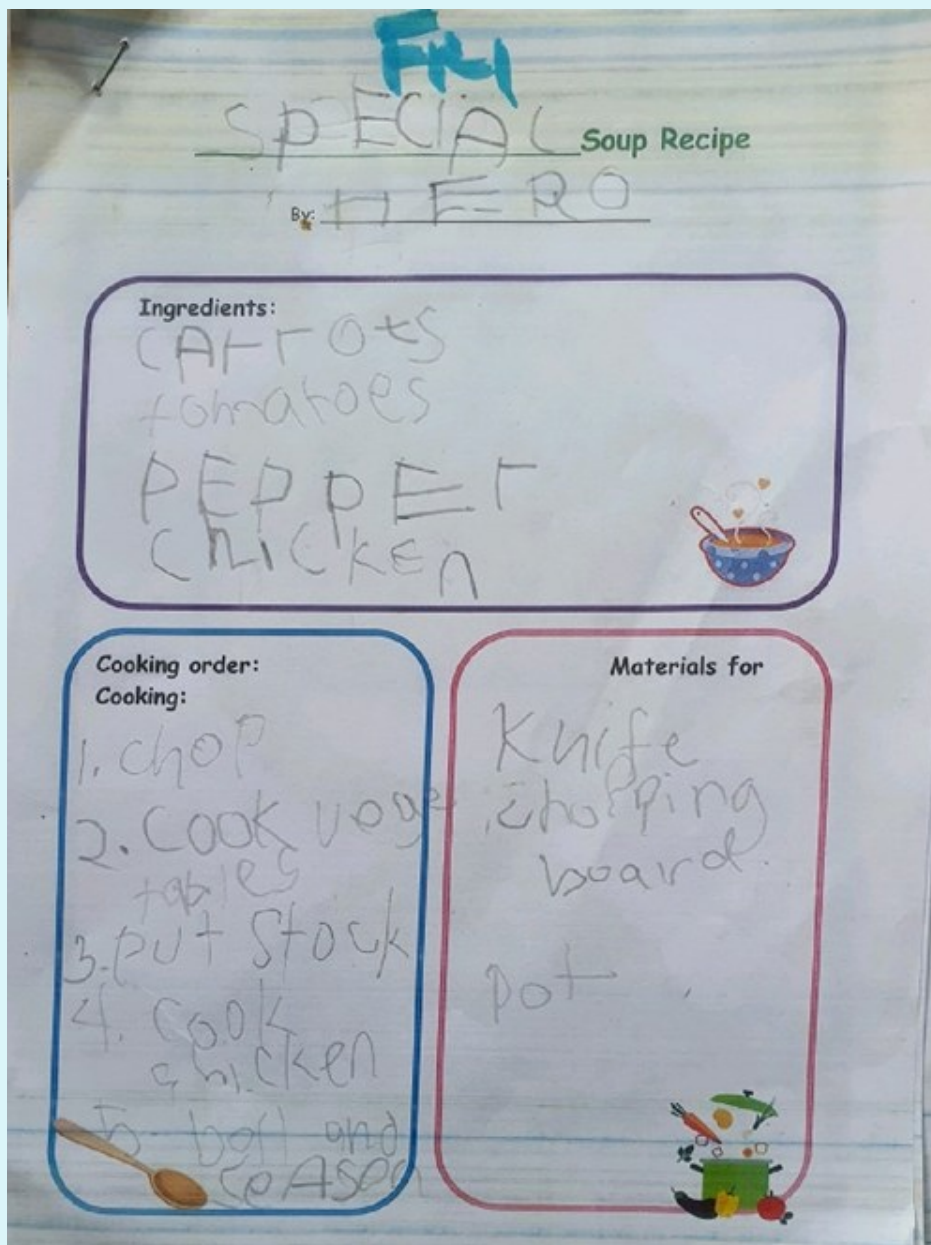 FRI
SPECIAL Soup Recipe
By: HERO
Ingredients:
CArrots
tomatoes
PEPPEr
ChiCKEn
Cooking order:
Cooking:
1. chop
2. Cook vege
tables
3. put Stock
4. Cook
chicken
5. boil and
seAson
Materials for
Knife
chopping
board.
pot